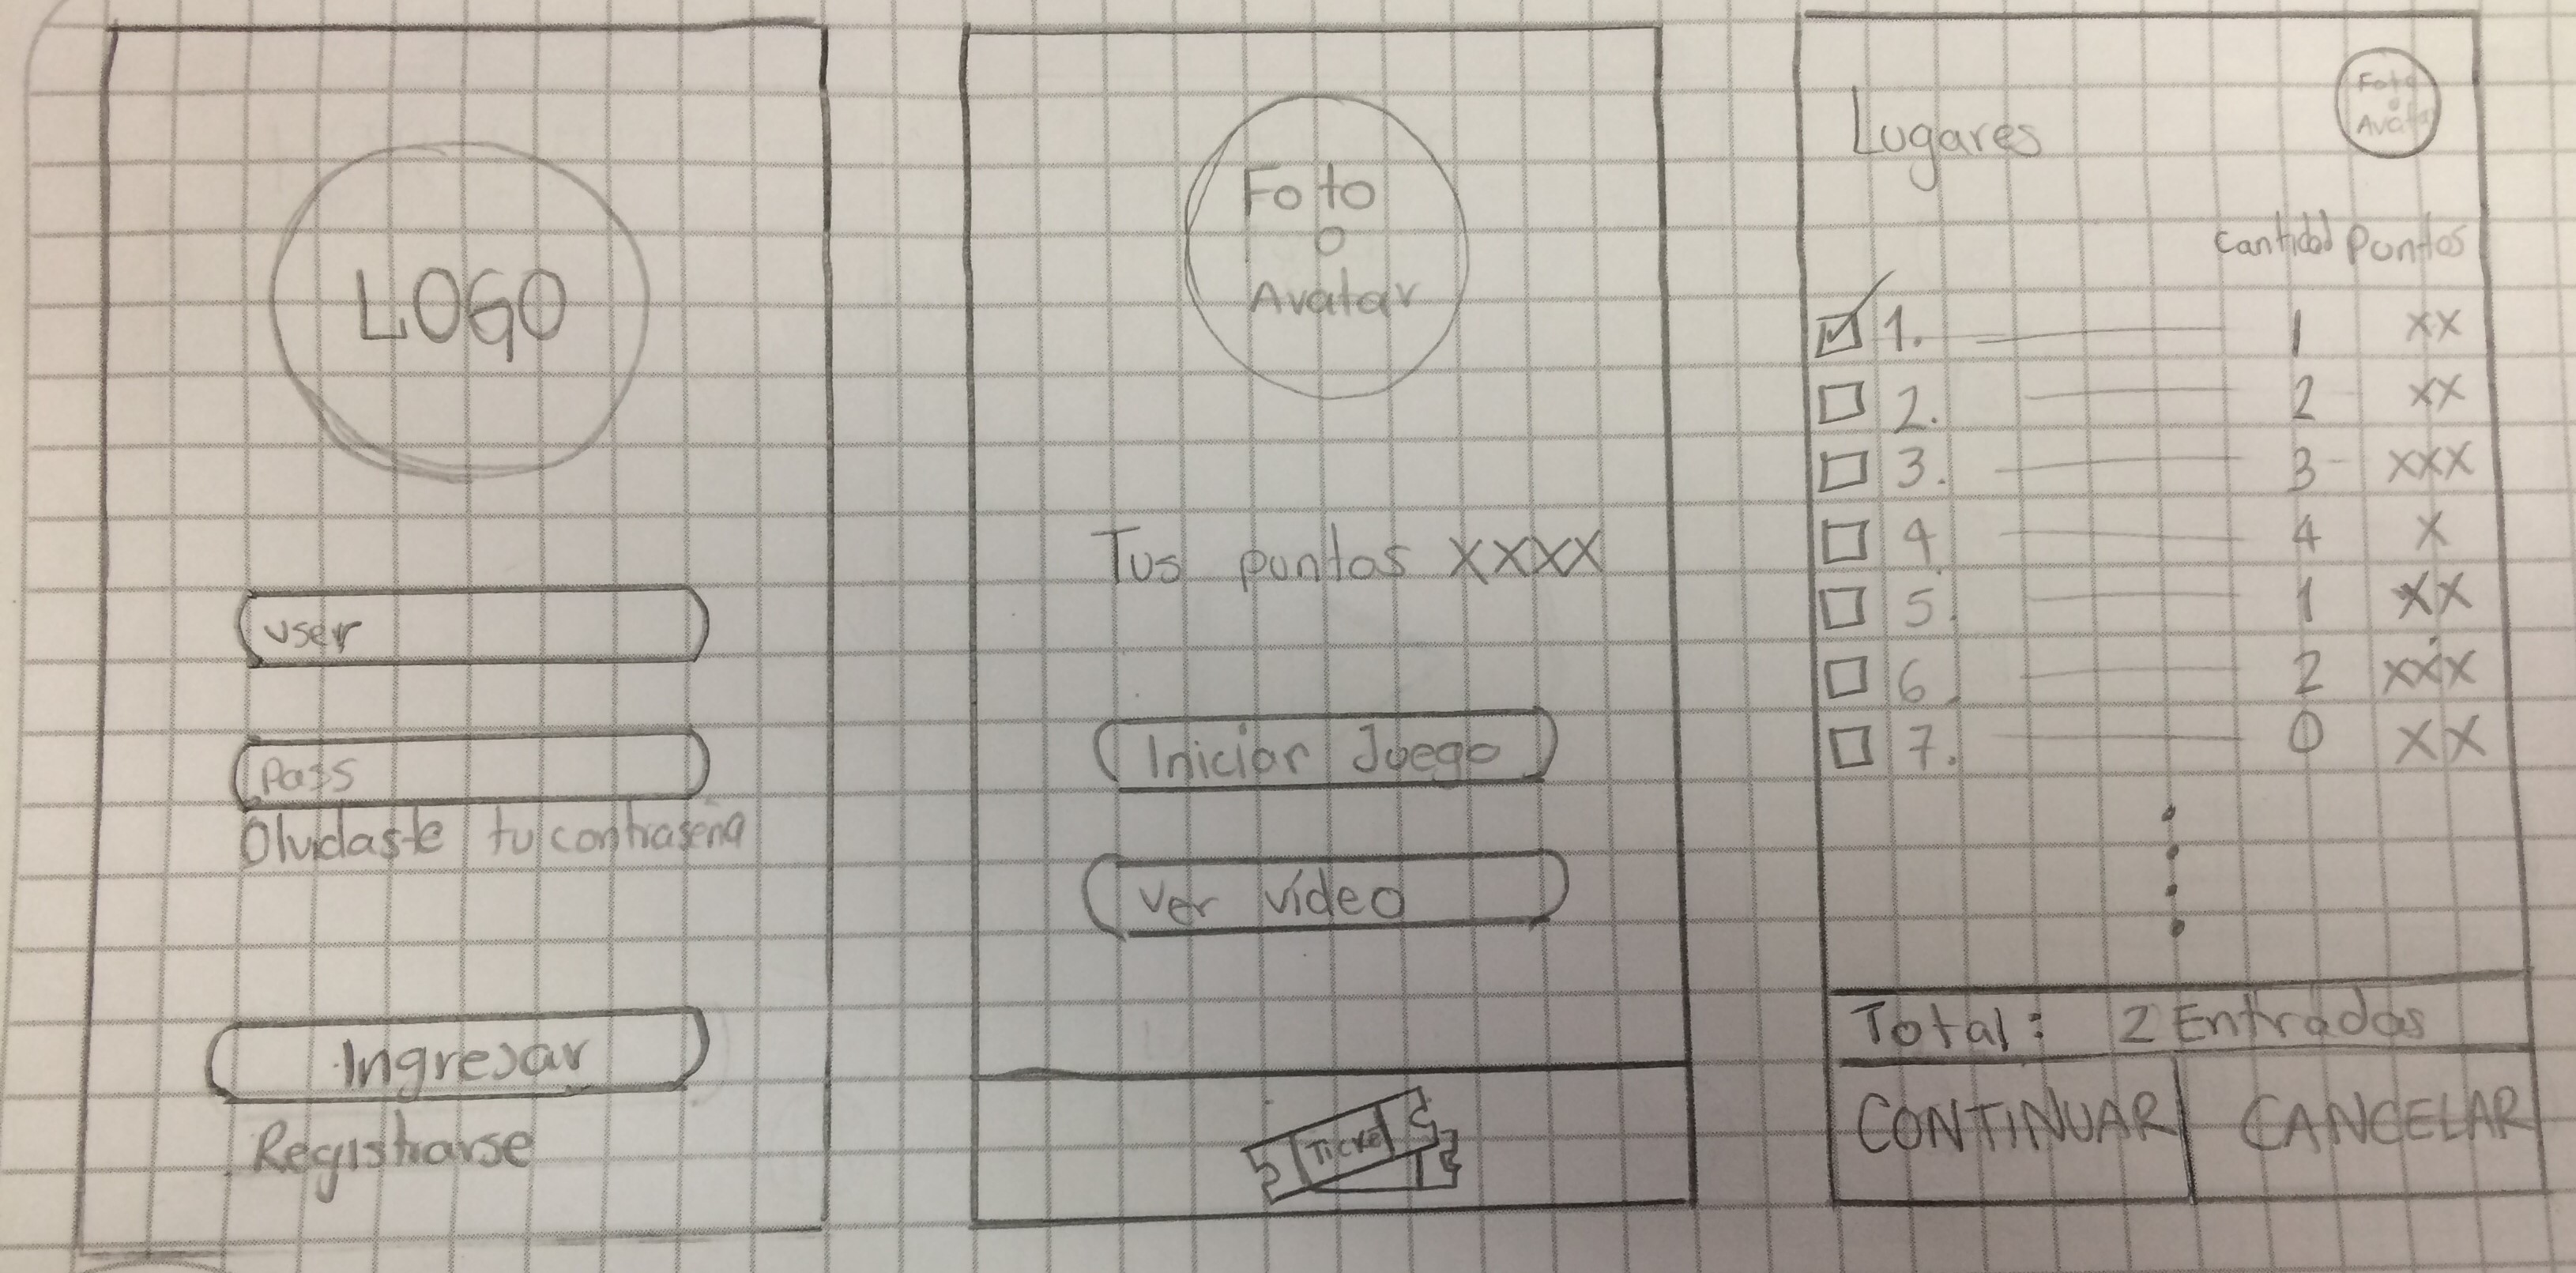 LOGO
user
Pass
Olvidaste tu contraseña
Ingresar
Registrarse
Foto
o
Avatar
Tus puntos XXXX
Iniciar Juego
Ver vídeo
Ticket
Foto
o
Avatar
Lugares
Cantidad Puntos
1. 1 XX
2. 2 XX
3. 3 XXX
4. 4 X
5. 1 XX
6. 2 XXX
7. 0 XX
Total: 2 Entradas
CONTINUAR CANCELAR